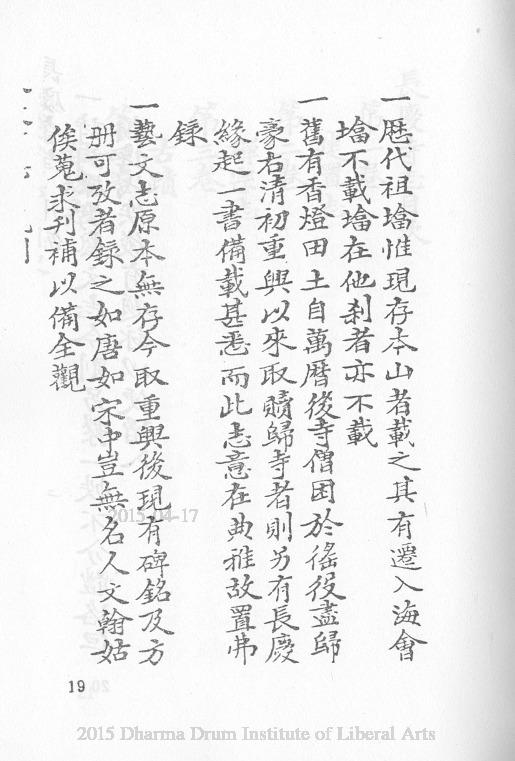 一歷代祖墖惟現存本山者載之其有遷入海會
墖不載墖在他剎者亦不載
一舊有香燈田土自萬曆後寺僧困於徭役盡歸
豪右清初重興以來取贖歸寺者則另有長慶
緣起一書備載甚悉而此志意在典雅故置弗
錄
一藝文志原本無存今取重興後現有碑銘及方
册可攷者錄之如唐如宋中豈無名人文翰姑
俟蒐求刋補以備全觀
2015-04-17
19
2015 Dharma Drum Institute of Liberal Arts